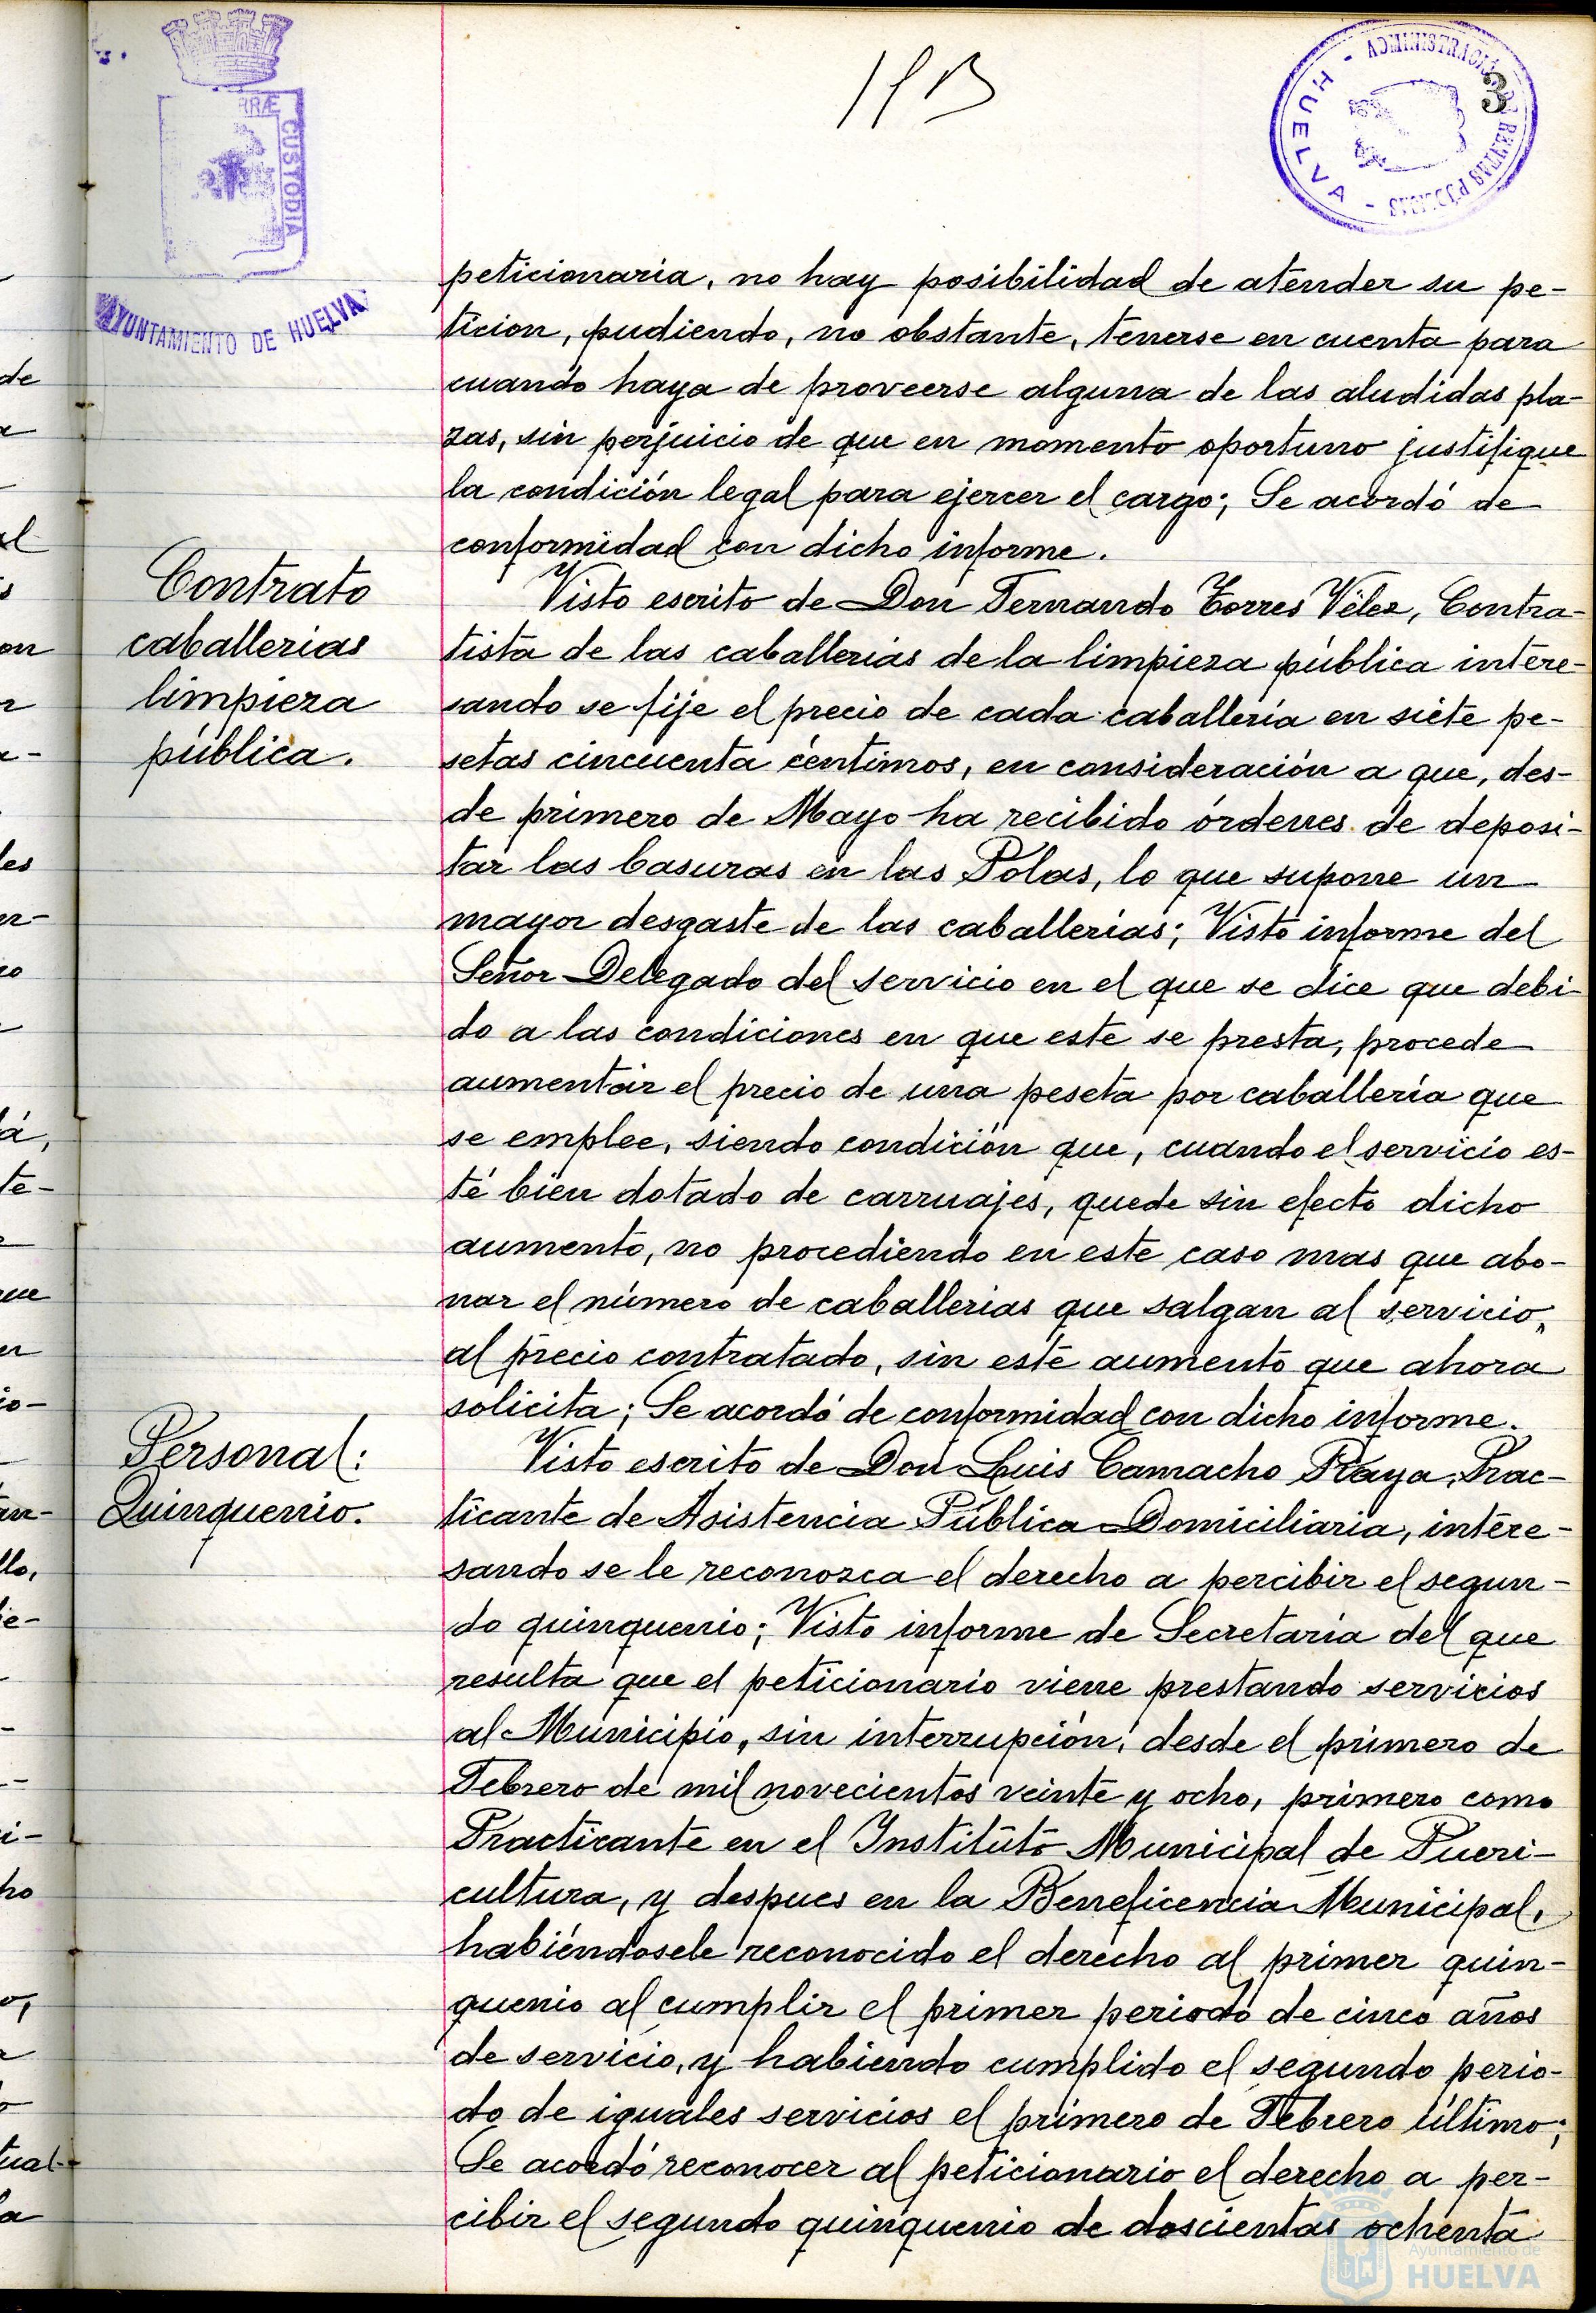 1913
ADMINISTRACIÓN DE RENTAS PÚBLICAS
- HUELVA -
3
RRÆ CUSTODIA
AYUNTAMIENTO DE HUELVA
peticionaria, no hay posibilidad de atender su pe-
ticion, pudiendo, no obstante, tenerse en cuenta para
cuando haya de proveerse alguna de las aludidas pla-
zas, sin perjuicio de que en momento oportuno justifique
la condición legal para ejercer el cargo; Se acordó de
conformidad con dicho informe.
Contrato
caballerias
limpieza
pública.
Visto escrito de Don Fernando Torres Vélez, Contra-
tista de las caballerias de la limpieza pública intere-
sando se fije el precio de cada caballería en siete pe-
setas cincuenta céntimos, en consideración a que, des-
de primero de Mayo ha recibido órdenes de deposi-
tar las basuras en las Polas, lo que supone un
mayor desgaste de las caballerías; Visto informe del
Señor Delegado del servicio en el que se dice que debi-
do a las condiciones en que este se presta, procede
aumentar el precio de una peseta por caballería que
se emplee, siendo condición que, cuando el servicio es-
té bien dotado de carruajes, quede sin efecto dicho
aumento, no procediendo en este caso mas que abo-
nar el número de caballerias que salgan al servicio,
al precio contratado, sin este aumento que ahora
solicita; Se acordó de conformidad con dicho informe.
Personal:
Quinquenio.
Visto escrito de Don Luis Camacho Raya, Prac-
ticante de Asistencia Pública Domiciliaria, intere-
sando se le reconozca el derecho a percibir el segun-
do quinquenio; Visto informe de Secretaría del que
resulta que el peticionario viene prestando servicios
al Municipio, sin interrupción, desde el primero de
Febrero de mil novecientos veinte y ocho, primero como
Practicante en el Instituto Municipal de Pueri-
cultura, y despues en la Beneficencia Municipal,
habiéndosele reconocido el derecho al primer quin-
quenio al cumplir el primer periodo de cinco años
de servicio, y habiendo cumplido el segundo perio-
do de iguales servicios el primero de Febrero último;
Se acordó reconocer al peticionario el derecho a per-
cibir el segundo quinquenio de doscientas ochenta
Ayuntamiento de
HUELVA